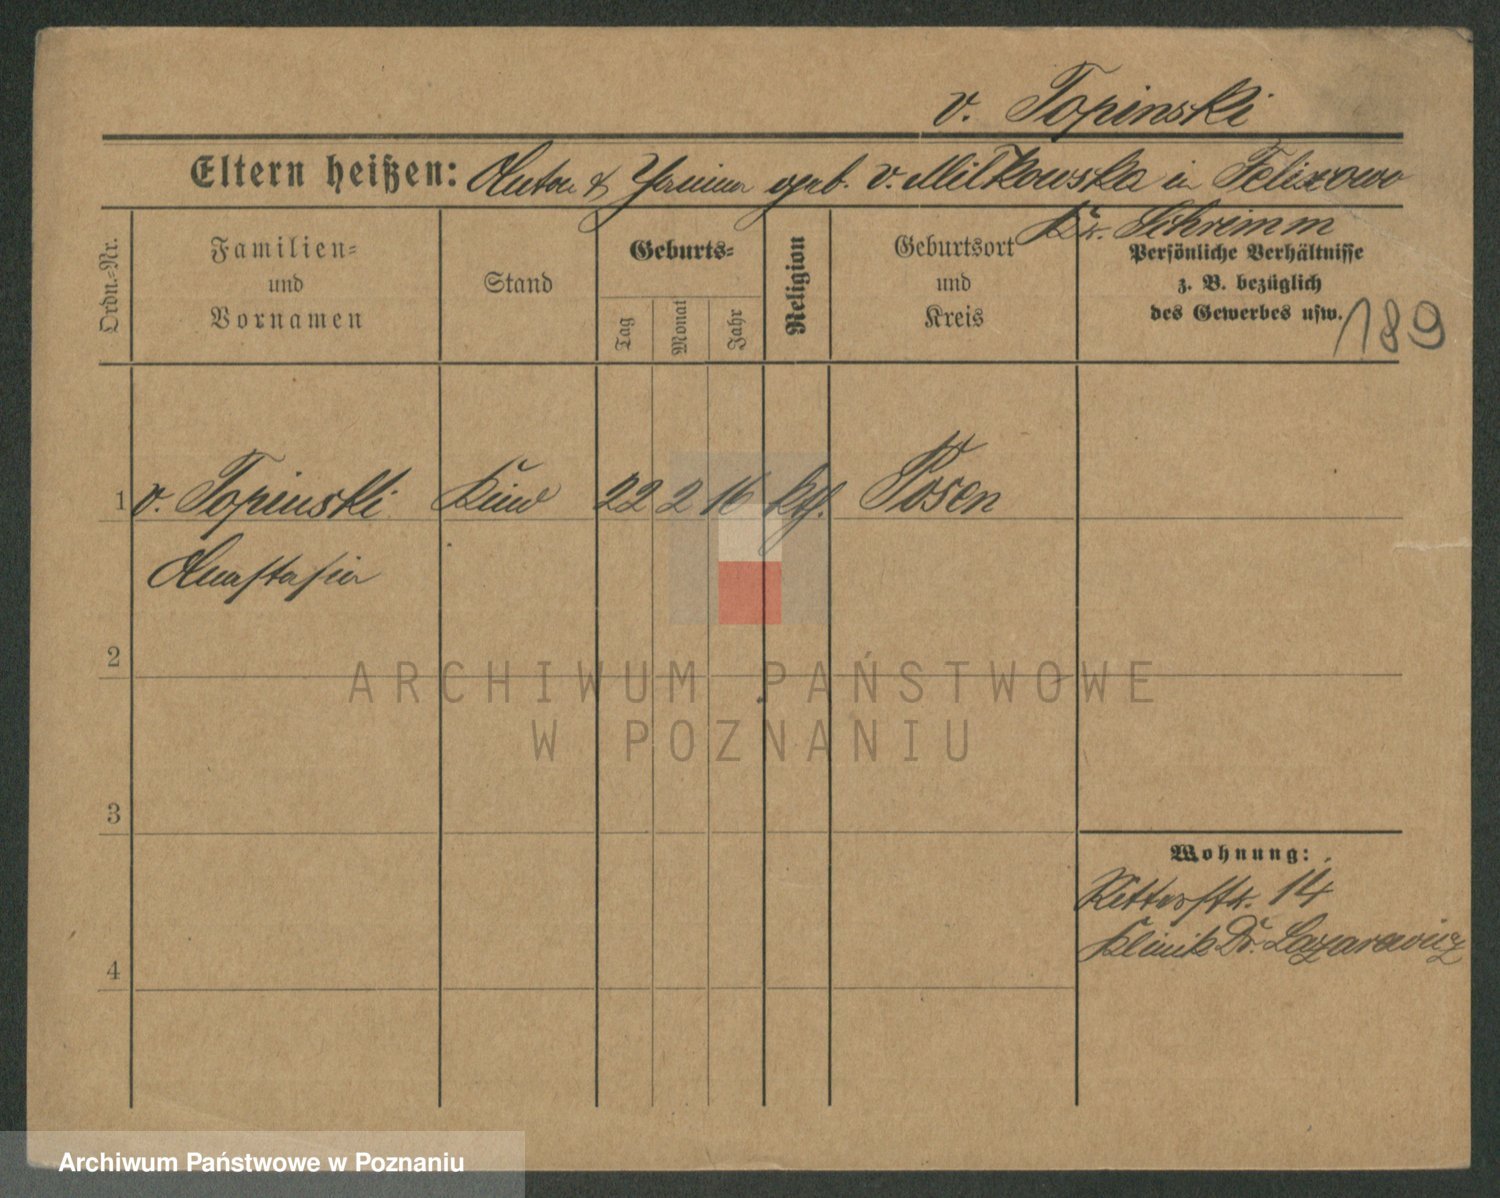 v. Topinski
Eltern heißen: Anton & Janina geb. v. Milkowska in Felixowo
Kr. Schrimm
Ordn.-Nr.
Familien-
und
Vornamen
Stand
Geburts-
Tag
Monat
Jahr
Religion
Geburtsort
und
Kreis
Persönliche Verhältnisse
z. B. bezüglich
des Gewerbes usw.
189
1 v. Topinski Kind 22 2 16 kth. Posen
Anastasia
2
ARCHIWUM PAŃSTWOWE
W POZNANIU
3
Wohnung:
Ritterstr. 14
Klinik Dr. Lazarewicz
4
Archiwum Państwowe w Poznaniu